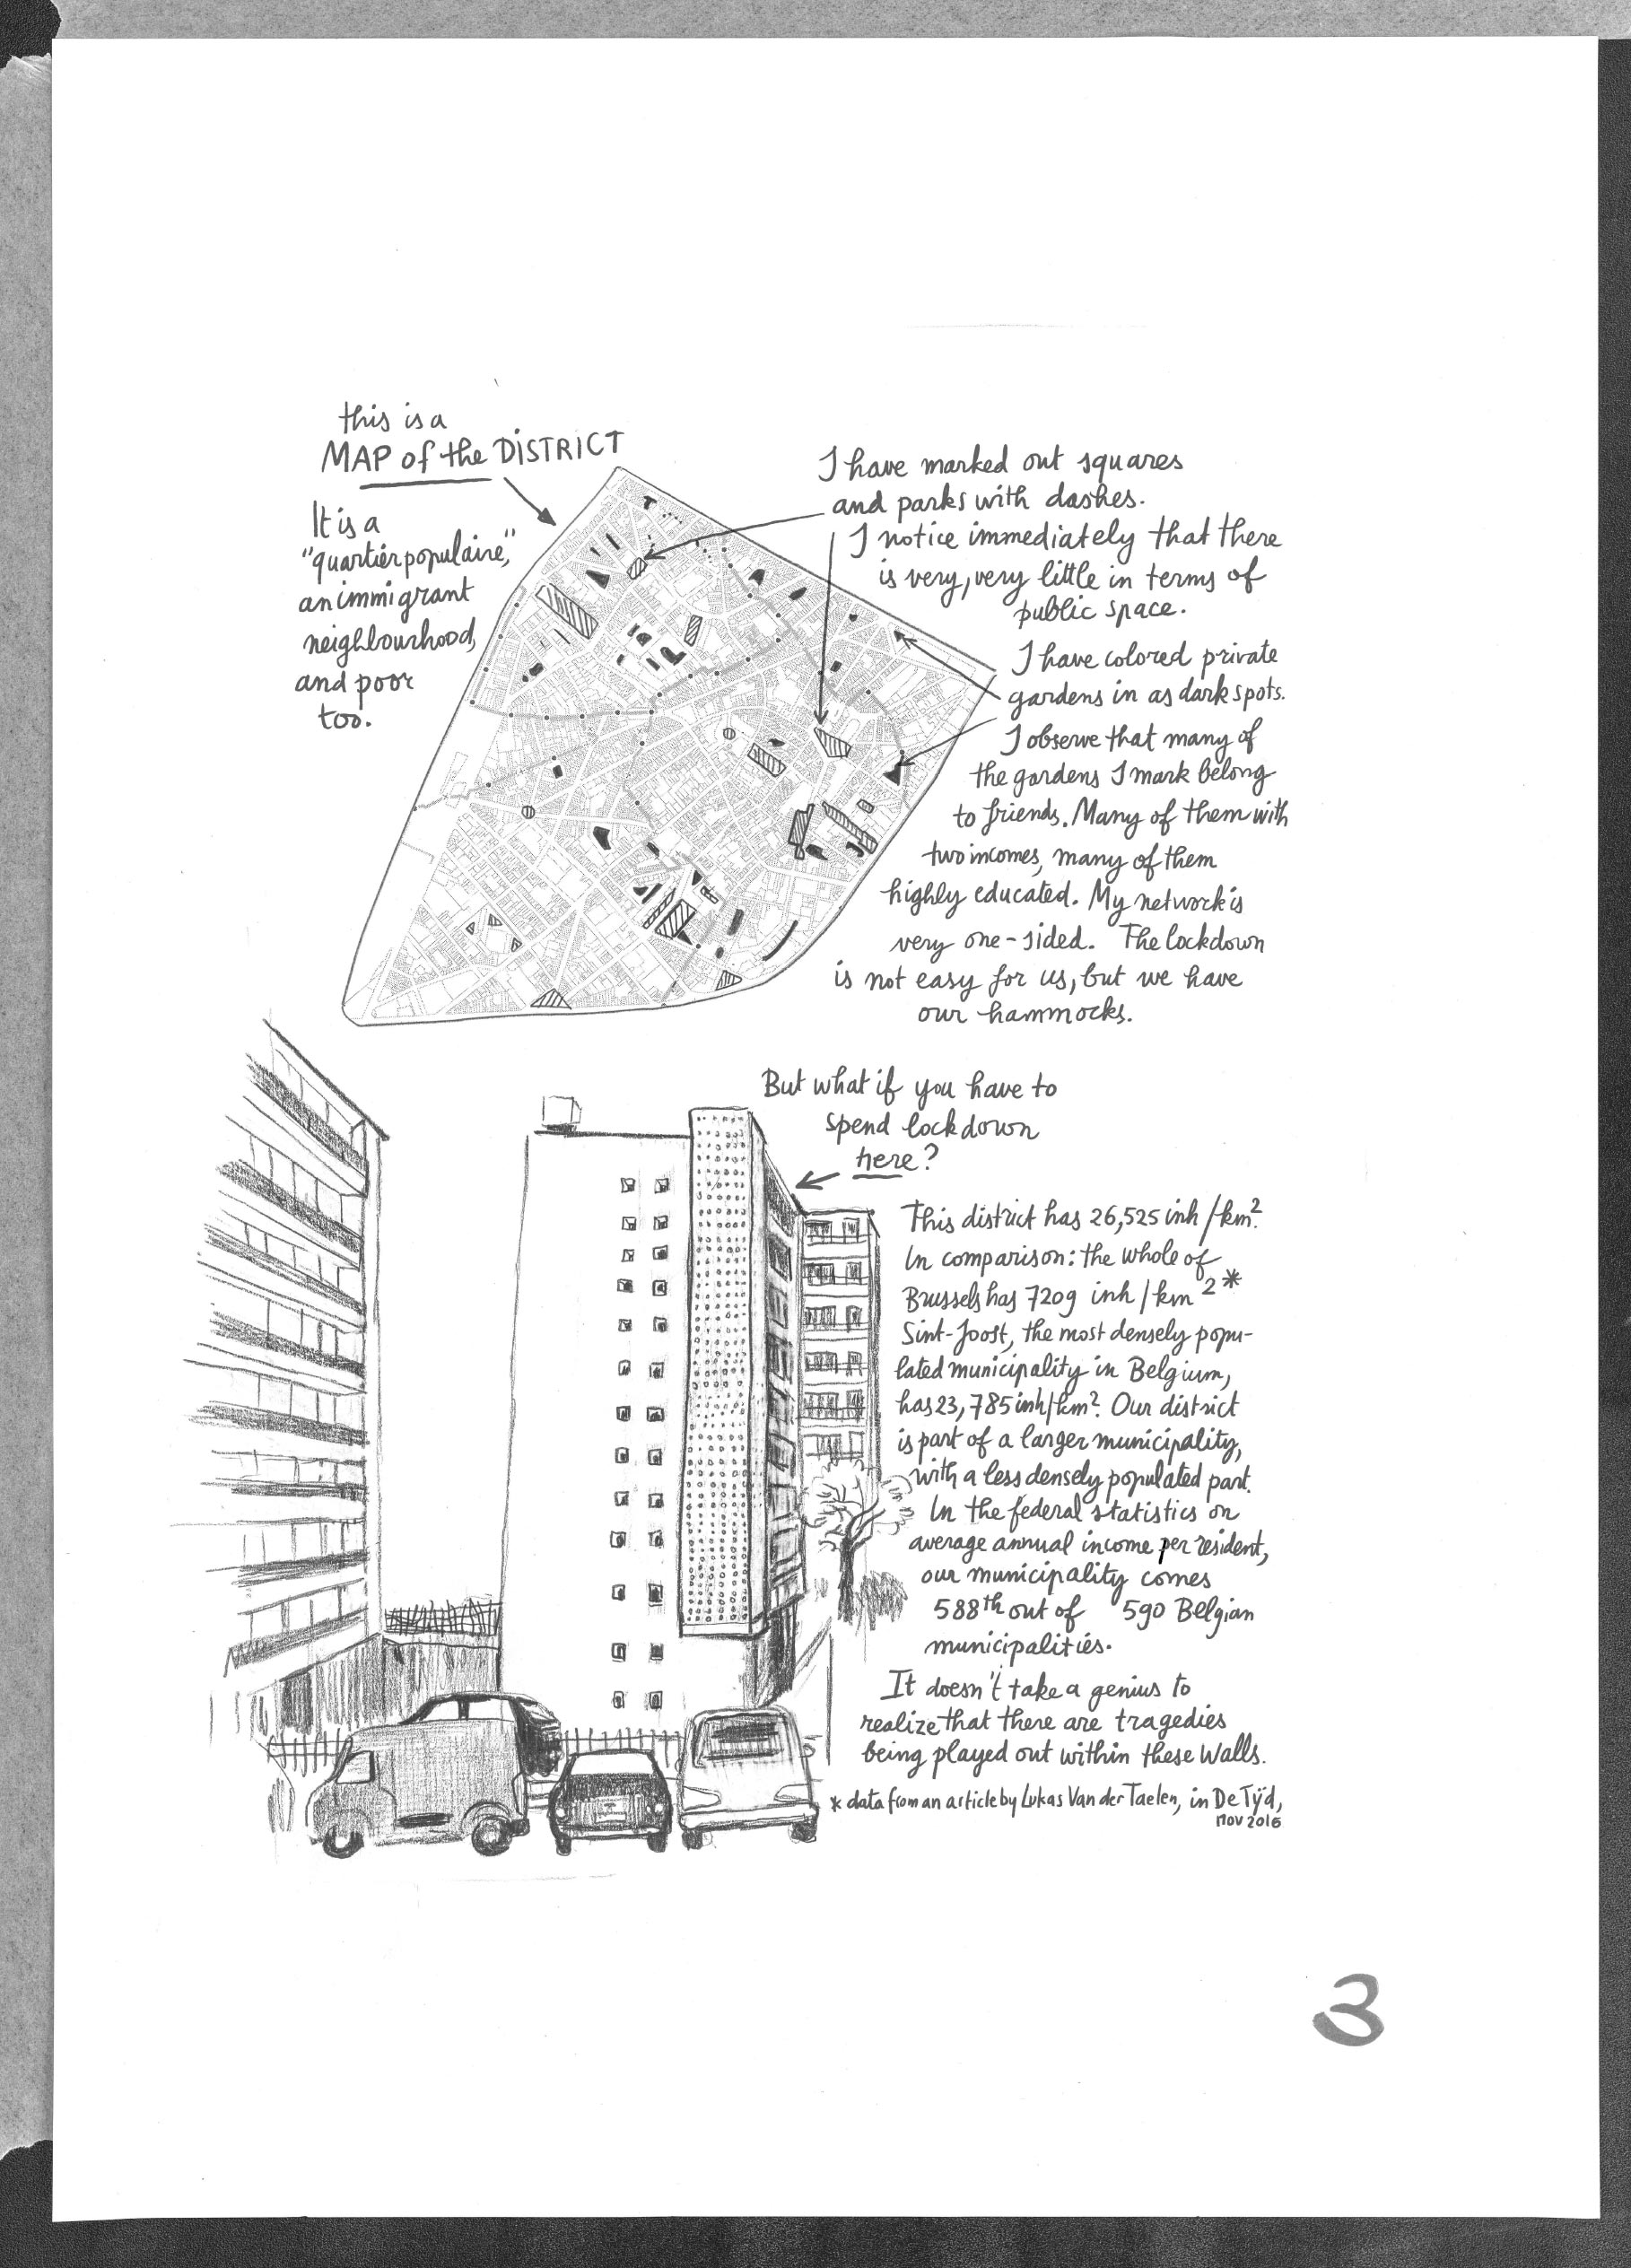 this is a
MAP of the DISTRICT
It is a
"quartier populaire,"
an immigrant
neighbourhood,
and poor
too.
I have marked out squares
and parks with dashes.
I notice immediately that there
is very, very little in terms of
public space.
I have colored private
gardens in as dark spots.
I observe that many of
the gardens I mark belong
to friends. Many of them with
two incomes, many of them
highly educated. My network is
very one-sided. The lockdown
is not easy for us, but we have
our hammocks.
But what if you have to
spend lockdown
here?
This district has 26,525 inh/km².
In comparison: the whole of
Brussels has 7209 inh/km²*
Sint-Joost, the most densely popu-
lated municipality in Belgium,
has 23,785 inh/km². Our district
is part of a larger municipality,
with a less densely populated part.
In the federal statistics on
average annual income per resident,
our municipality comes
588th out of 590 Belgian
municipalities.
It doesn't take a genius to
realize that there are tragedies
being played out within these walls.
* data from an article by Lukas Van der Taelen, in De Tijd,
nov 2016
3